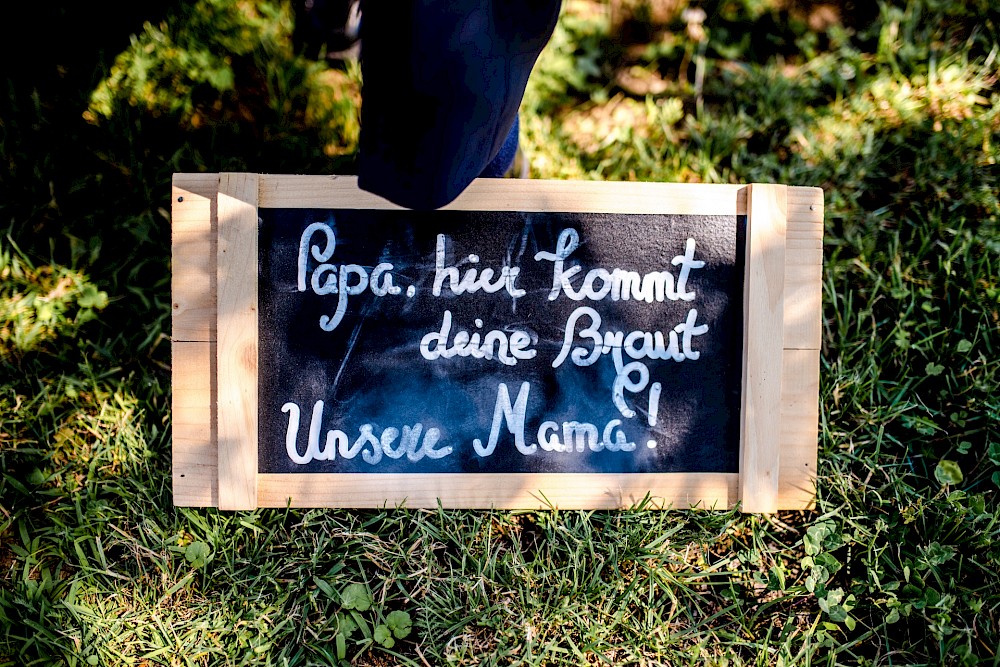 Papa, hier kommt
deine Braut
Unsere Mama!